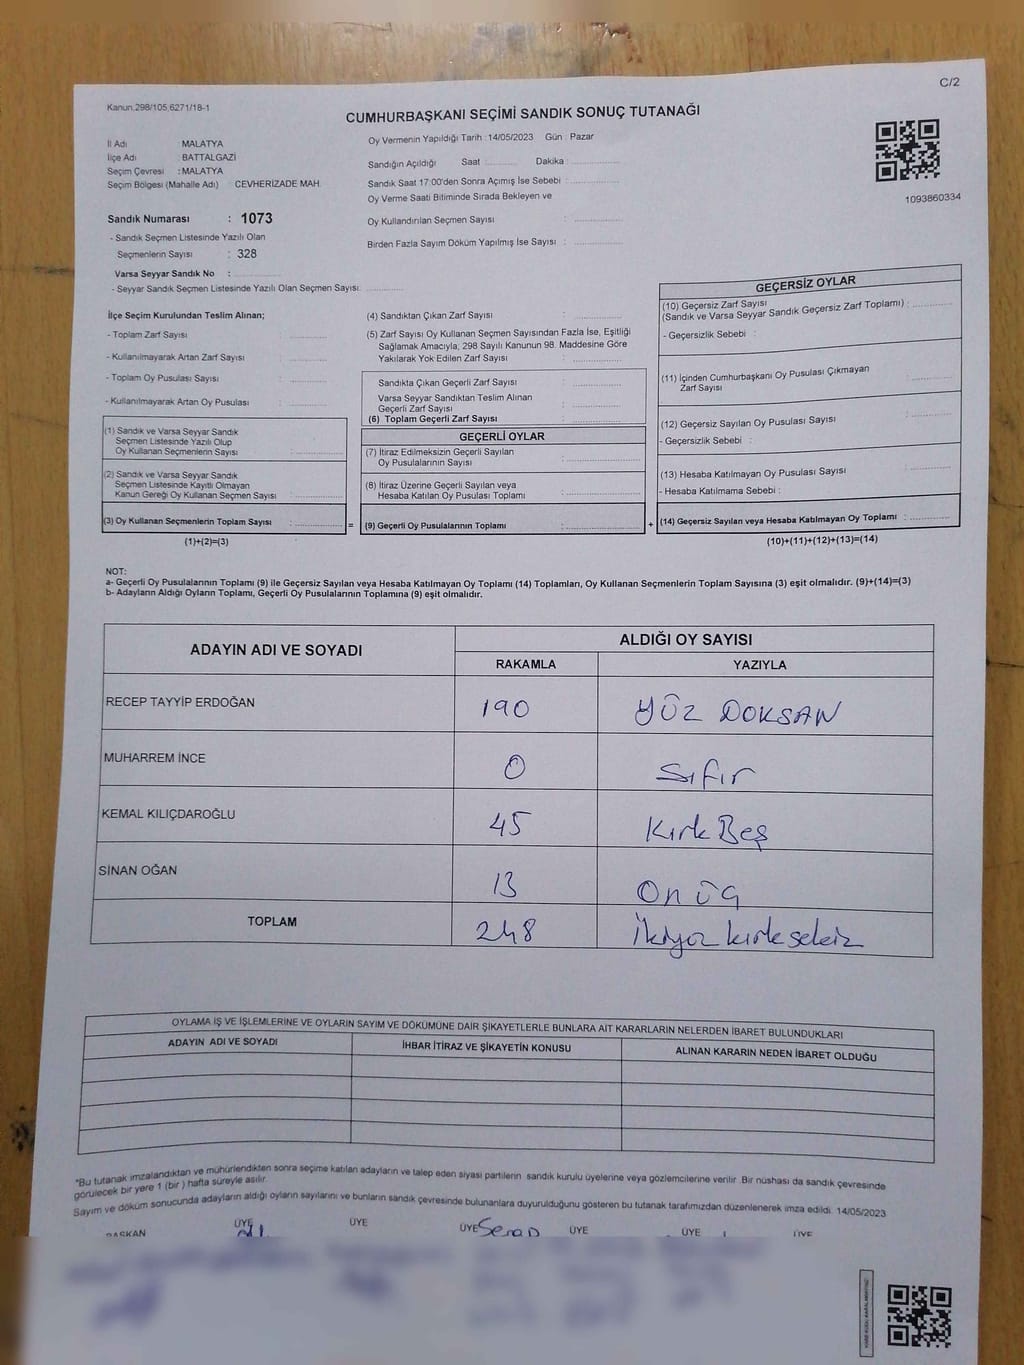 C/2
Kanun.298/105,6271/18-1
CUMHURBAŞKANI SEÇİMİ SANDIK SONUÇ TUTANAĞI
İl Adı MALATYA
İlçe Adı BATTALGAZİ
Seçim Çevresi : MALATYA
Seçim Bölgesi (Mahalle Adı) CEVHERİZADE MAH.
Sandık Numarası : 1073
- Sandık Seçmen Listesinde Yazılı Olan
Seçmenlerin Sayısı : 328
Varsa Seyyar Sandık No :
- Seyyar Sandık Seçmen Listesinde Yazılı Olan Seçmen Sayısı:
Oy Vermenin Yapıldığı Tarih :14/05/2023 Gün : Pazar
Sandığın Açıldığı Saat Dakika :
Sandık Saat 17:00'den Sonra Açımış İse Sebebi :
Oy Verme Saati Bitiminde Sırada Bekleyen ve
Oy Kullandırılan Seçmen Sayısı :
Birden Fazla Sayım Döküm Yapılmış İse Sayısı :
1093860334
İlçe Seçim Kurulundan Teslim Alınan;
- Toplam Zarf Sayısı :
- Kullanılmayarak Artan Zarf Sayısı :
- Toplam Oy Pusulası Sayısı :
- Kullanılmayarak Artan Oy Pusulası :
(1) Sandık ve Varsa Seyyar Sandık
Seçmen Listesinde Yazılı Olup
Oy Kullanan Seçmenlerin Sayısı :
(2) Sandık ve Varsa Seyyar Sandık
Seçmen Listesinde Kayıtlı Olmayan
Kanun Gereği Oy Kullanan Seçmen Sayısı :
(3) Oy Kullanan Seçmenlerin Toplam Sayısı : =
(1)+(2)=(3)
(4) Sandıktan Çıkan Zarf Sayısı :
(5) Zarf Sayısı Oy Kullanan Seçmen Sayısından Fazla İse, Eşitliği
Sağlamak Amacıyla; 298 Sayılı Kanunun 98. Maddesine Göre
Yakılarak Yok Edilen Zarf Sayısı :
Sandıkta Çıkan Geçerli Zarf Sayısı :
Varsa Seyyar Sandıktan Teslim Alınan
Geçerli Zarf Sayısı :
(6) Toplam Geçerli Zarf Sayısı :
GEÇERLİ OYLAR
(7) İtiraz Edilmeksizin Geçerli Sayılan
Oy Pusulalarının Sayısı :
(8) İtiraz Üzerine Geçerli Sayılan veya
Hesaba Katılan Oy Pusulası Toplamı :
(9) Geçerli Oy Pusulalarının Toplamı : +
GEÇERSİZ OYLAR
(10) Geçersiz Zarf Sayısı
(Sandık ve Varsa Seyyar Sandık Geçersiz Zarf Toplamı) :
- Geçersizlik Sebebi :
(11) İçinden Cumhurbaşkanı Oy Pusulası Çıkmayan
Zarf Sayısı :
(12) Geçersiz Sayılan Oy Pusulası Sayısı :
- Geçersizlik Sebebi :
(13) Hesaba Katılmayan Oy Pusulası Sayısı :
- Hesaba Katılmama Sebebi :
(14) Geçersiz Sayılan veya Hesaba Katılmayan Oy Toplamı :
(10)+(11)+(12)+(13)=(14)
NOT:
a- Geçerli Oy Pusulalarının Toplamı (9) ile Geçersiz Sayılan veya Hesaba Katılmayan Oy Toplamı (14) Toplamları, Oy Kullanan Seçmenlerin Toplam Sayısına (3) eşit olmalıdır. (9)+(14)=(3)
b- Adayların Aldığı Oyların Toplamı, Geçerli Oy Pusulalarının Toplamına (9) eşit olmalıdır.
ADAYIN ADI VE SOYADI ALDIĞI OY SAYISI
RAKAMLA YAZIYLA
RECEP TAYYİP ERDOĞAN 190 YÜZ DOKSAN
MUHARREM İNCE 0 Sıfır
KEMAL KILIÇDAROĞLU 45 Kırk Beş
SİNAN OĞAN 13 On üç
TOPLAM 248 İkiyüz kırk sekiz
OYLAMA İŞ VE İŞLEMLERİNE VE OYLARIN SAYIM VE DÖKÜMÜNE DAİR ŞİKAYETLERLE BUNLARA AİT KARARLARIN NELERDEN İBARET BULUNDUKLARI
ADAYIN ADI VE SOYADI İHBAR İTİRAZ VE ŞİKAYETİN KONUSU ALINAN KARARIN NEDEN İBARET OLDUĞU
*Bu tutanak imzalandıktan ve mühürlendikten sonra seçime katılan adayların ve talep eden siyasi partilerin sandık kurulu üyelerine veya gözlemcilerine verilir. Bir nüshası da sandık çevresinde
görülecek bir yere 1 (bir ) hafta süreyle asılır.
Sayım ve döküm sonucunda adayların aldığı oyların sayılarını ve bunların sandık çevresinde bulunanlara duyurulduğunu gösteren bu tutanak tarafımızdan düzenlenerek imza edildi. 14/05/2023
BAŞKAN ÜYE ÜYE ÜYE Serap ÜYE ÜYE ÜYE